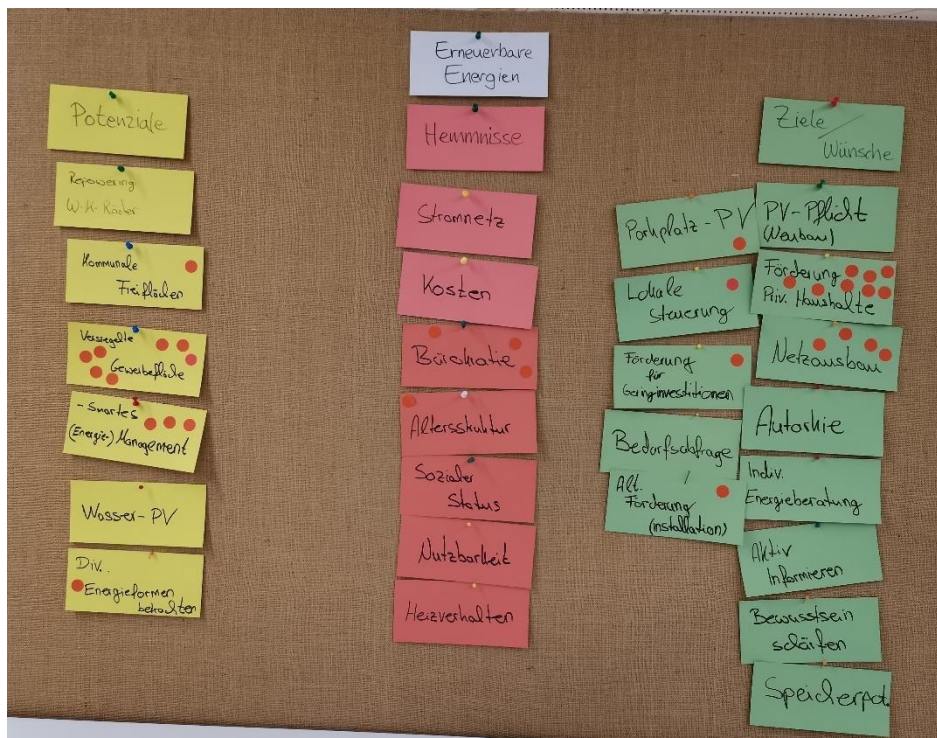 Erneuerbare
Energien
Potenziale
Repowering
W-K-Räder
Kommunale
Freiflächen
Versiegelte
Gewerbefläche
- Smartes
(Energie-) Management
Wasser-PV
Div.
Energieformen
betrachten
Hemmnisse
Stromnetz
Kosten
Bürokratie
Altersstruktur
Sozialer
Status
Nutzbarkeit
Heizverhalten
Ziele /
Wünsche
Parkplatz-PV
Lokale
Steuerung
Förderung
für
Geringinvestitionen
Bedarfsabfrage
Alt.
Förderung
(installation)
PV-Pflicht
(Neubau)
Förderung
Priv. Haushalte
Netzausbau
Autarkie
Indiv.
Energieberatung
Aktiv
Informieren
Bewusstsein
schärfen
Speicherpot.